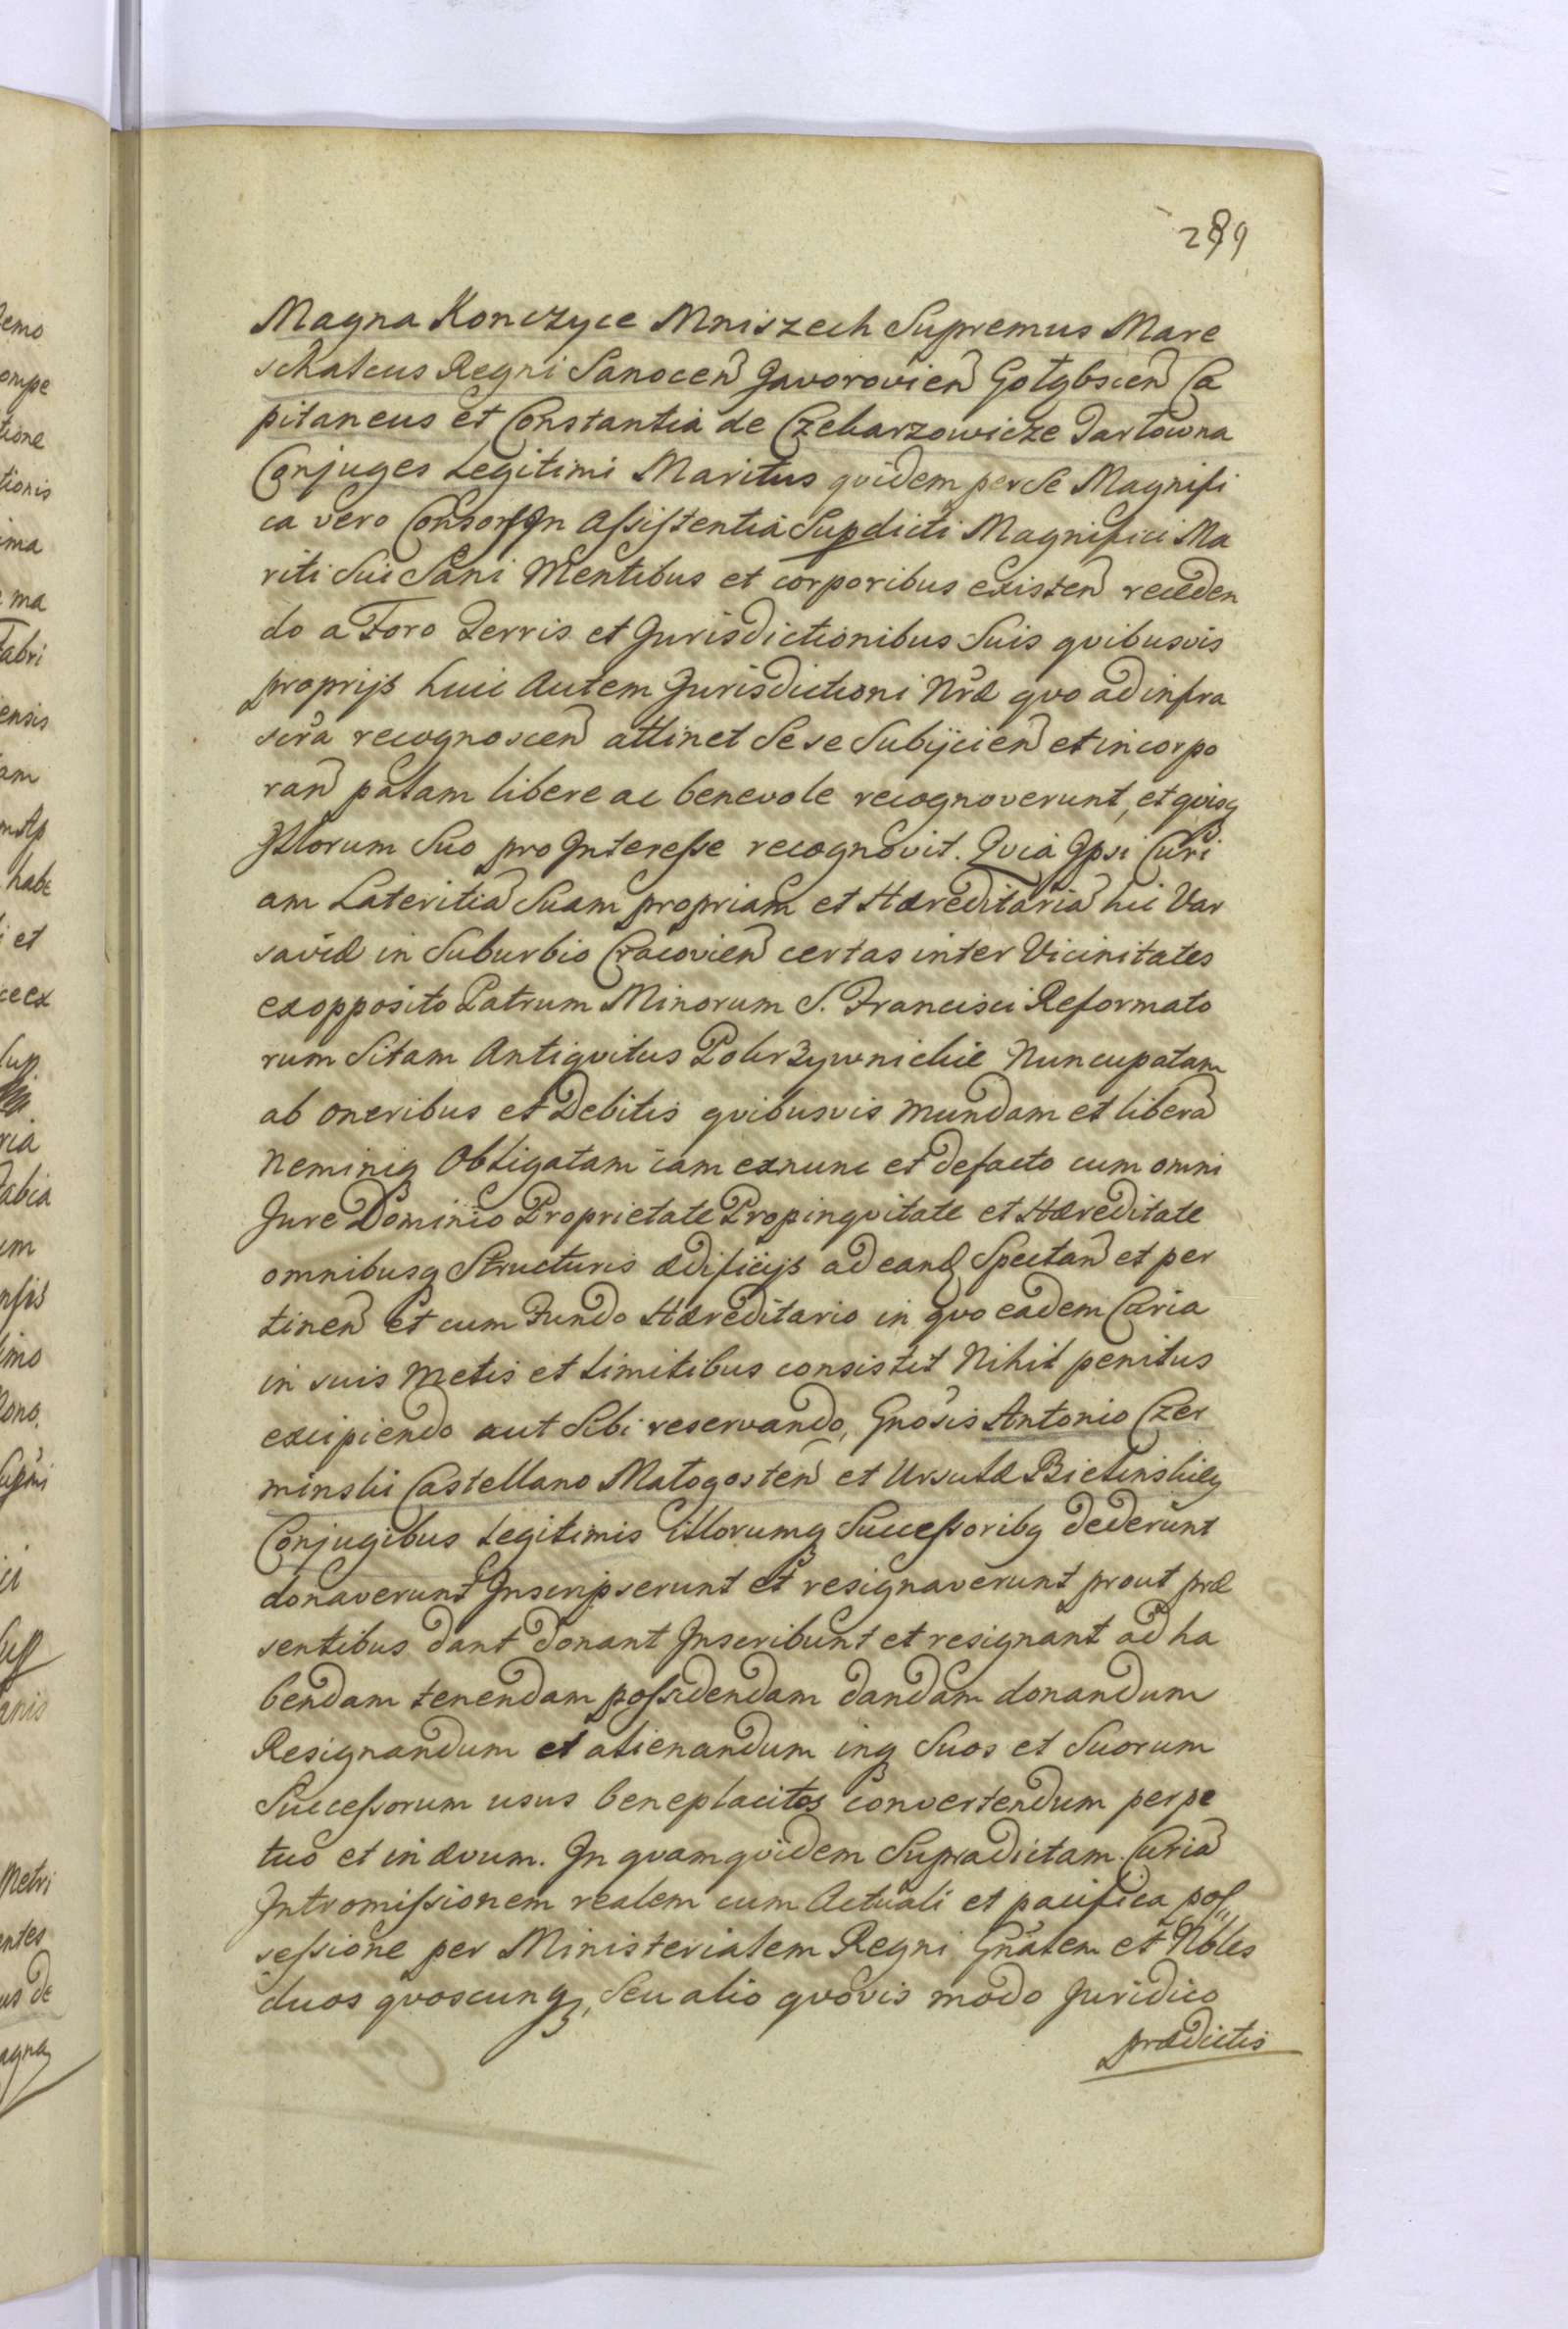 289
Magna Konczyce Mniszech Supremus Mare
schalcus Regni Sanocen Javorovien Gołąbscen Ca
pitaneus et Constantia de Czekarzowicze Tarłowna
Conjuges Legitimi Maritus quidem per Se Magnifi
ca vero Consors In Assistentia Supdicti Magnifici Ma
riti Sui Sani Mentibus et corporibus existen receden
do a Foro Terris et Jurisdictionibus Suis quibusvis
proprijs huic Autem Jurisdictioni Nræ quo ad infra
scra recognoscen attinet Sese Subijcien et incorpo
ran palam libere ac benevole recognoverunt, et quisq
Illorum Suo pro Interesse recognovit. Quia Ipsi Curi
am Lateritia Suam propriam et Hæreditaria hic Var
saviæ in Suburbio Cracovien certas inter Vicinitates
ex opposito Patrum Minorum S. Francisci Reformato
rum Sitam Antiquitus Pokrzywnickie Nuncupatam
ab oneribus et Debitis quibusvis mundam et libera
Neminiq Obligatam iam exnunc et defacto cum omni
Jure Dominio Proprietate Propinquitate et Hæreditate
omnibusq Structuris ædificijs ad eand Spectan et per
tinen Et cum Fundo Hæreditario in quo eadem Curia
in suis Metis et Limitibus consistit Nihil penitus
excipiendo aut Sibi reservando, Gnosis Antonio Czer
minski Castellano Małogosten et Ursulæ Bielinskieÿ
Conjugibus Legitimis illorumq Successoribq dederunt
donaverunt Inscripserunt et resignaverunt prout præ
sentibus dant donant Inscribunt et resignant ad ha
bendam tenendam possidendam dandam donandum
Resignandum et alienandum inq Suos et Suorum
Successorum usus beneplacitos convertendum perpe
tuo et in ævum. In quam quidem Supradictam Curia
Intromissionem realem cum Actuali et pacifica pos„
sessione per Ministerialem Regni Gnalem et Nobles
duos quoscunq, Seu alio quovis modo Juridico
prædictis